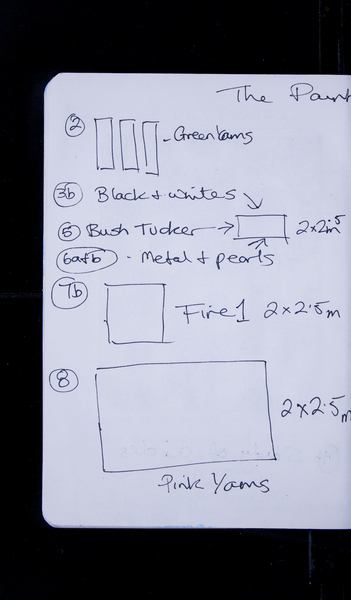 The Paint
② - Green Yams
③b Black & whites
⑤ Bush Tucker → 2x2m5
6a+b - Metal & pearls
7b Fire 1 2x2.5m
⑧ 2x2.5m
Pink Yams